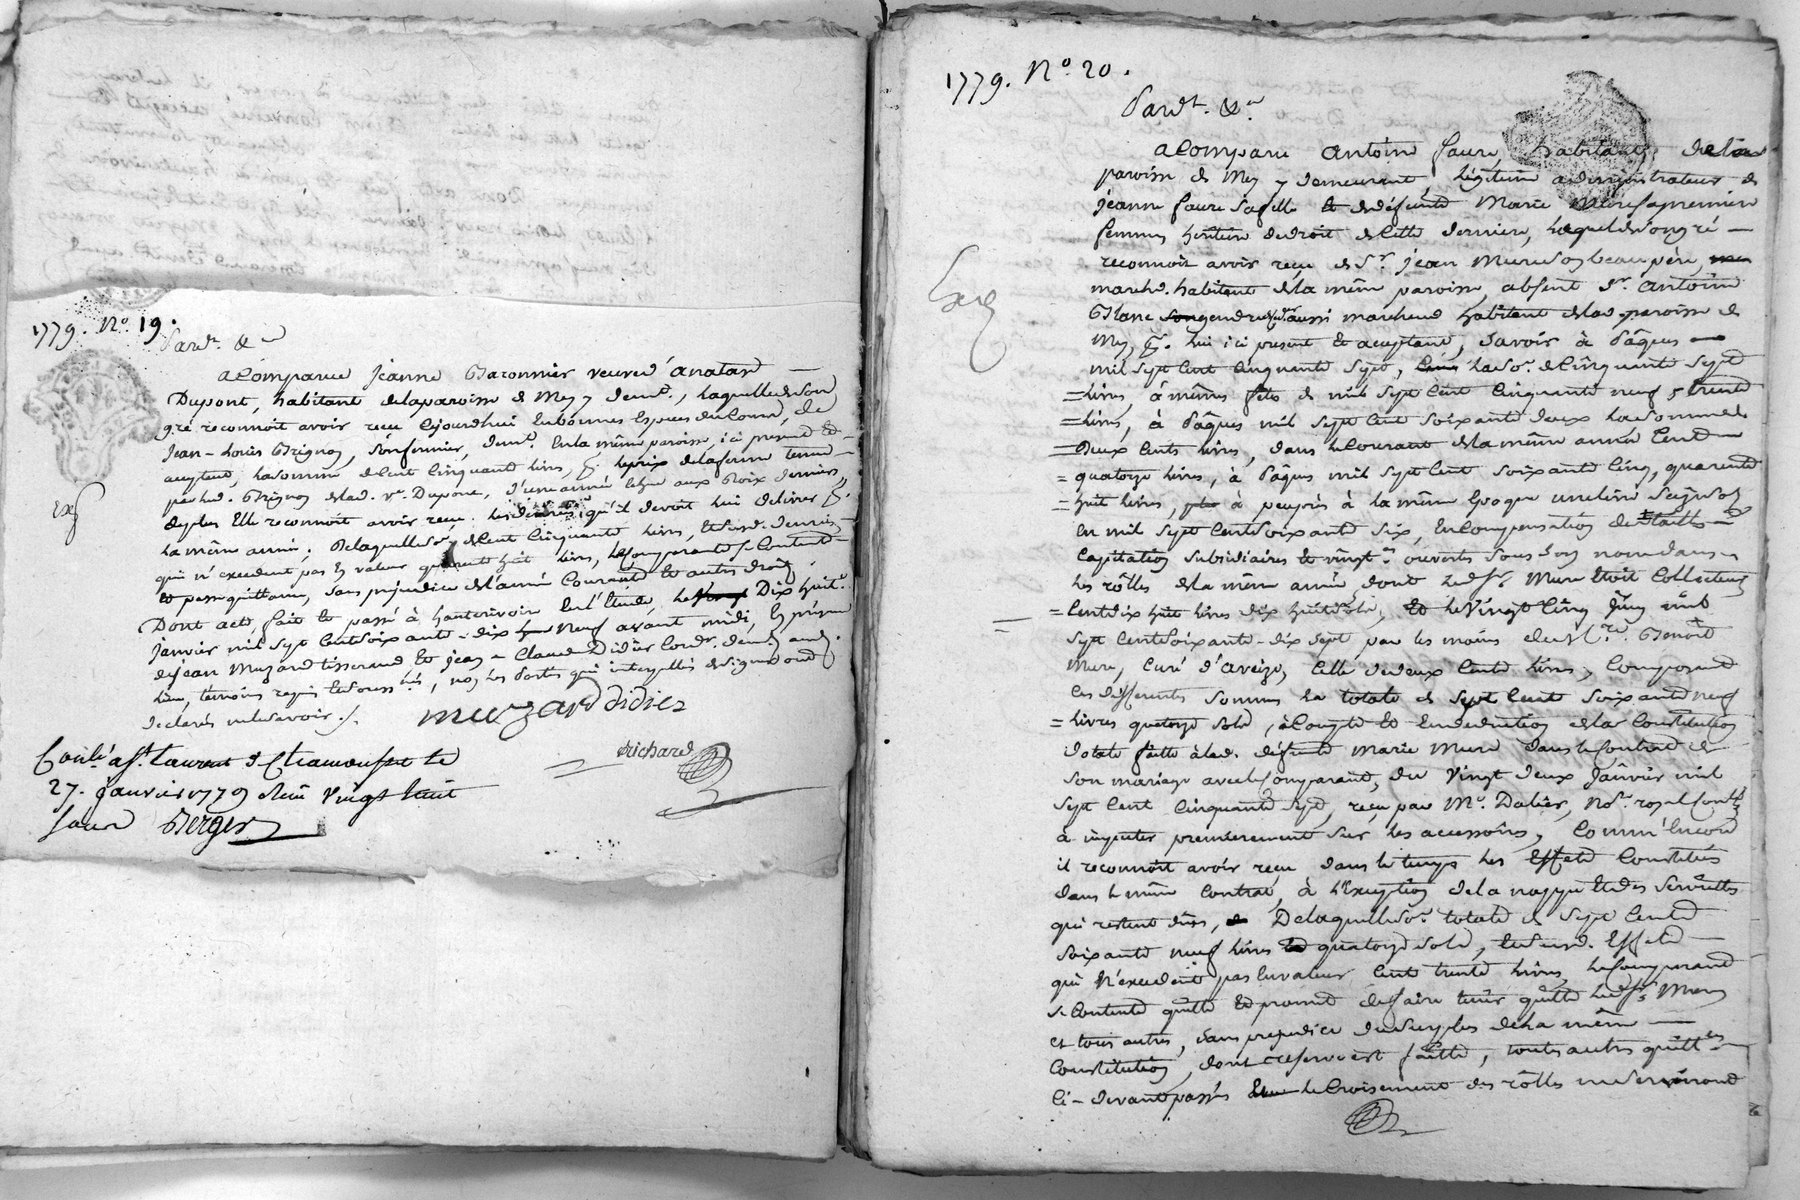 1779. N.º 19.
Pard.t &.a
a Comparue jeanne Baronnier veuve d'anatard
Dupont, habitant de la paroisse de Mey y demt., laquelle de son
gré reconnoit avoir reçu cejourdhui en bonnes espèces du Cours, de
jean-Louis Brignon, son fermier, demt. en la même paroisse, ici present et
aceptant, la somme de Cent Cinquante livres, p.r le prix de la ferme tenue
par led. Brignon de lad. v.e Dupont, d'une année echue aux Rois derniers
de plus Elle reconnoit avoir reçu les denrées qu'il devoit lui delivrer p.r
la même année; De laquelle so.e de Cent Cinquante livres, et desd. denrées
qui n'excedent pas en valeur quarante huit livres, la Comparante se Contente
et passe quittance, sans prejudice de l'année Courante et autres droits
Dont acte, fait et passé à hauterivoire en l'étude, le Dix huit.e
janvier mil sept Cent soixante-dix neuf avant midi, En présence
de jean Muzard tisserand et jean-Claude Didier Cord.r demt. aud.
lieu, témoins requis et sous.nés, non les Parties qui interpellés de signer ont
declarés ne le savoir ./.
muzard didier
richard
Conlé a St. Laurent d. Chamousset le
27. janvier 1779 Reçu vingt huit
sous Berger
1779. N.º 20.
Pard.t &.a
a Comparu antoine faure, habitant de la
paroisse de Mey y demeurant, légitime administrateur de
jeanne faure sa fille et de défunte Marie Mure sa premiere
femme, heritiere de droit de cette derniere, lequel de son gré
reconnoit avoir reçu de S.r jean Mure son beau pere,
march.d habitant de la même paroisse, absent S.r antoine
Blanc son gendre aussi marchand habitant de lad. paroisse de
Mey, p.r lui ici present et aceptant, savoir à Pâques
mil sept Cent Cinquante sept, la so.e de Cinquante sept
livres, à mêmes fêtes de mil sept Cent Cinquante neuf, trente
livres, à Pâques mil sept Cent soixante deux la somme de
Deux Cents livres, dans le Courant de la même année Cent
quatorze livres, à Pâques mil sept Cent soixante Cinq, quarante
huit livres, à peuprès à la même Epoque une livre seize sols
en mil sept Cent soixante six, en Compensation de tailles
Capitation subsidiaires et vingt.es ouverts sous son nom dans
les rôlles de la même année dont led. S.r Mure étoit Collecteur
Cent dix huit livres dix huit sols, et le vingt Cinq juin mil
sept Cent soixante-dix sept par les mains de M.re Benoît
Mure, Curé d'aveize, celle de deux Cents livres, Composant
ces differentes sommes la totale de sept Cent soixante neuf
livres quatorze sols, à Compte et en deduction de la Constitution
dotale faitte à lad. défunte Marie Mure dans le Contrat de
son mariage avec le Comparant, du vingt deux janvier mil
sept Cent Cinquante sept, reçu par M.e Dalier, No.re royal Contlé
à imputer premierement sur les accessoires, Comm'encore
il reconnoit avoir reçu dans le temps les Effets Constitués
dans le même Contrat, à l'Exception de la nappe et des serviettes
qui restent dües, De laquelle so.e totale de sept Cent
soixante neuf livres quatorze sols, et desd. Effets
qui N'excedent pas en valeur Cent trente livres, le Comparant
se Contente quitte et promet de faire tenir quitte led. S.r Mure
et tous autres, sans prejudice du surplus de la même
Constitution, dont reserve est faitte, toutes autres quitt.ces
Ci-devant passés le Croisement des rôlles ne serviront